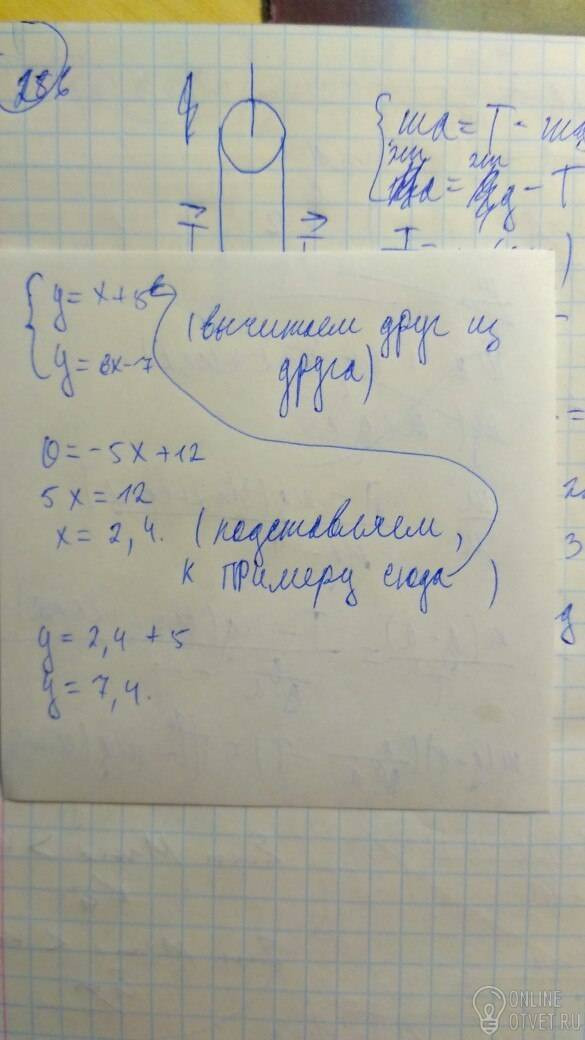 286
ma = T - m
a = g - T
T
T
{ y = x + 5
y = 6x - 7
(вычитаем друг из друга)
0 = -5x + 12
5x = 12
x = 2,4. (подставляем,
к примеру сюда)
y = 2,4 + 5
y = 7,4.
=
2
3
g
ONLINE
OTVET.RU